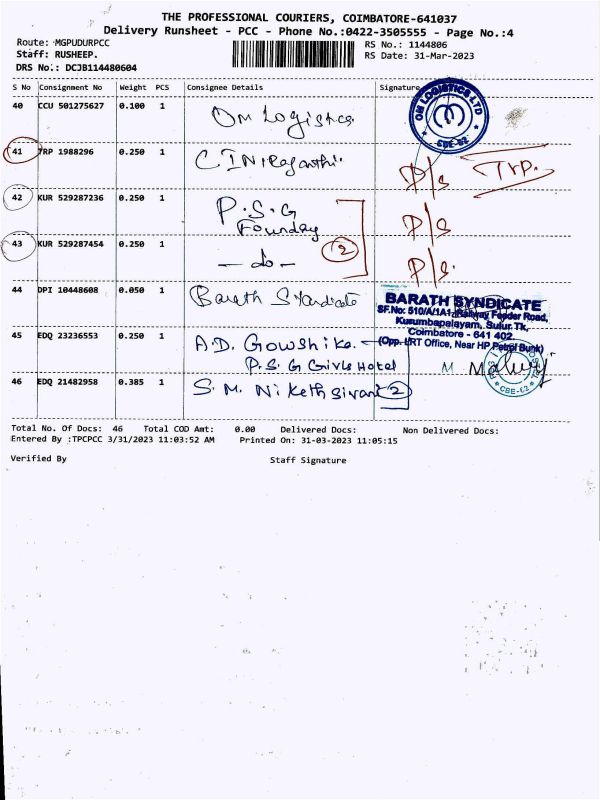 THE PROFESSIONAL COURIERS, COIMBATORE-641037
Delivery Runsheet - PCC - Phone No.:0422-3505555 - Page No.:4
Route: MGPUDURPCC
RS No.: 1144806
Staff: RUSHEEP.
RS Date: 31-Mar-2023
DRS No.: DCJB114480604
S No Consignment No Weight PCS Consignee Details Signature
40 CCU 501275627 0.100 1 Om Logistics
OM LOGISTICS LTD
CBE-62
41 TRP 1988296 0.250 1 P/S Trp.
42 KUR 529287236 0.250 1 P.S.G P/S
Foundry
43 KUR 529287454 0.250 1 - do - 2 P/S.
44 DPI 10448608 0.050 1 Barath Syndicate
BARATH SYNDICATE
SF.No: 510/A/1A1, Railway Feeder Road,
Kurumbapalayam, Sulur Tk,
Coimbatore - 641 402.
(Opp. LRT Office, Near HP Petrol Bunk)
45 EDQ 23236553 0.250 1 A.D. Gowshika.
P.S.G Girls Hotel
46 EDQ 21482958 0.385 1 S.M. Nikethsivani 2
CBE-62
Total No. Of Docs: 46 Total COD Amt: 0.00 Delivered Docs: Non Delivered Docs:
Entered By :TPCPCC 3/31/2023 11:03:52 AM Printed On: 31-03-2023 11:05:15
Verified By Staff Signature